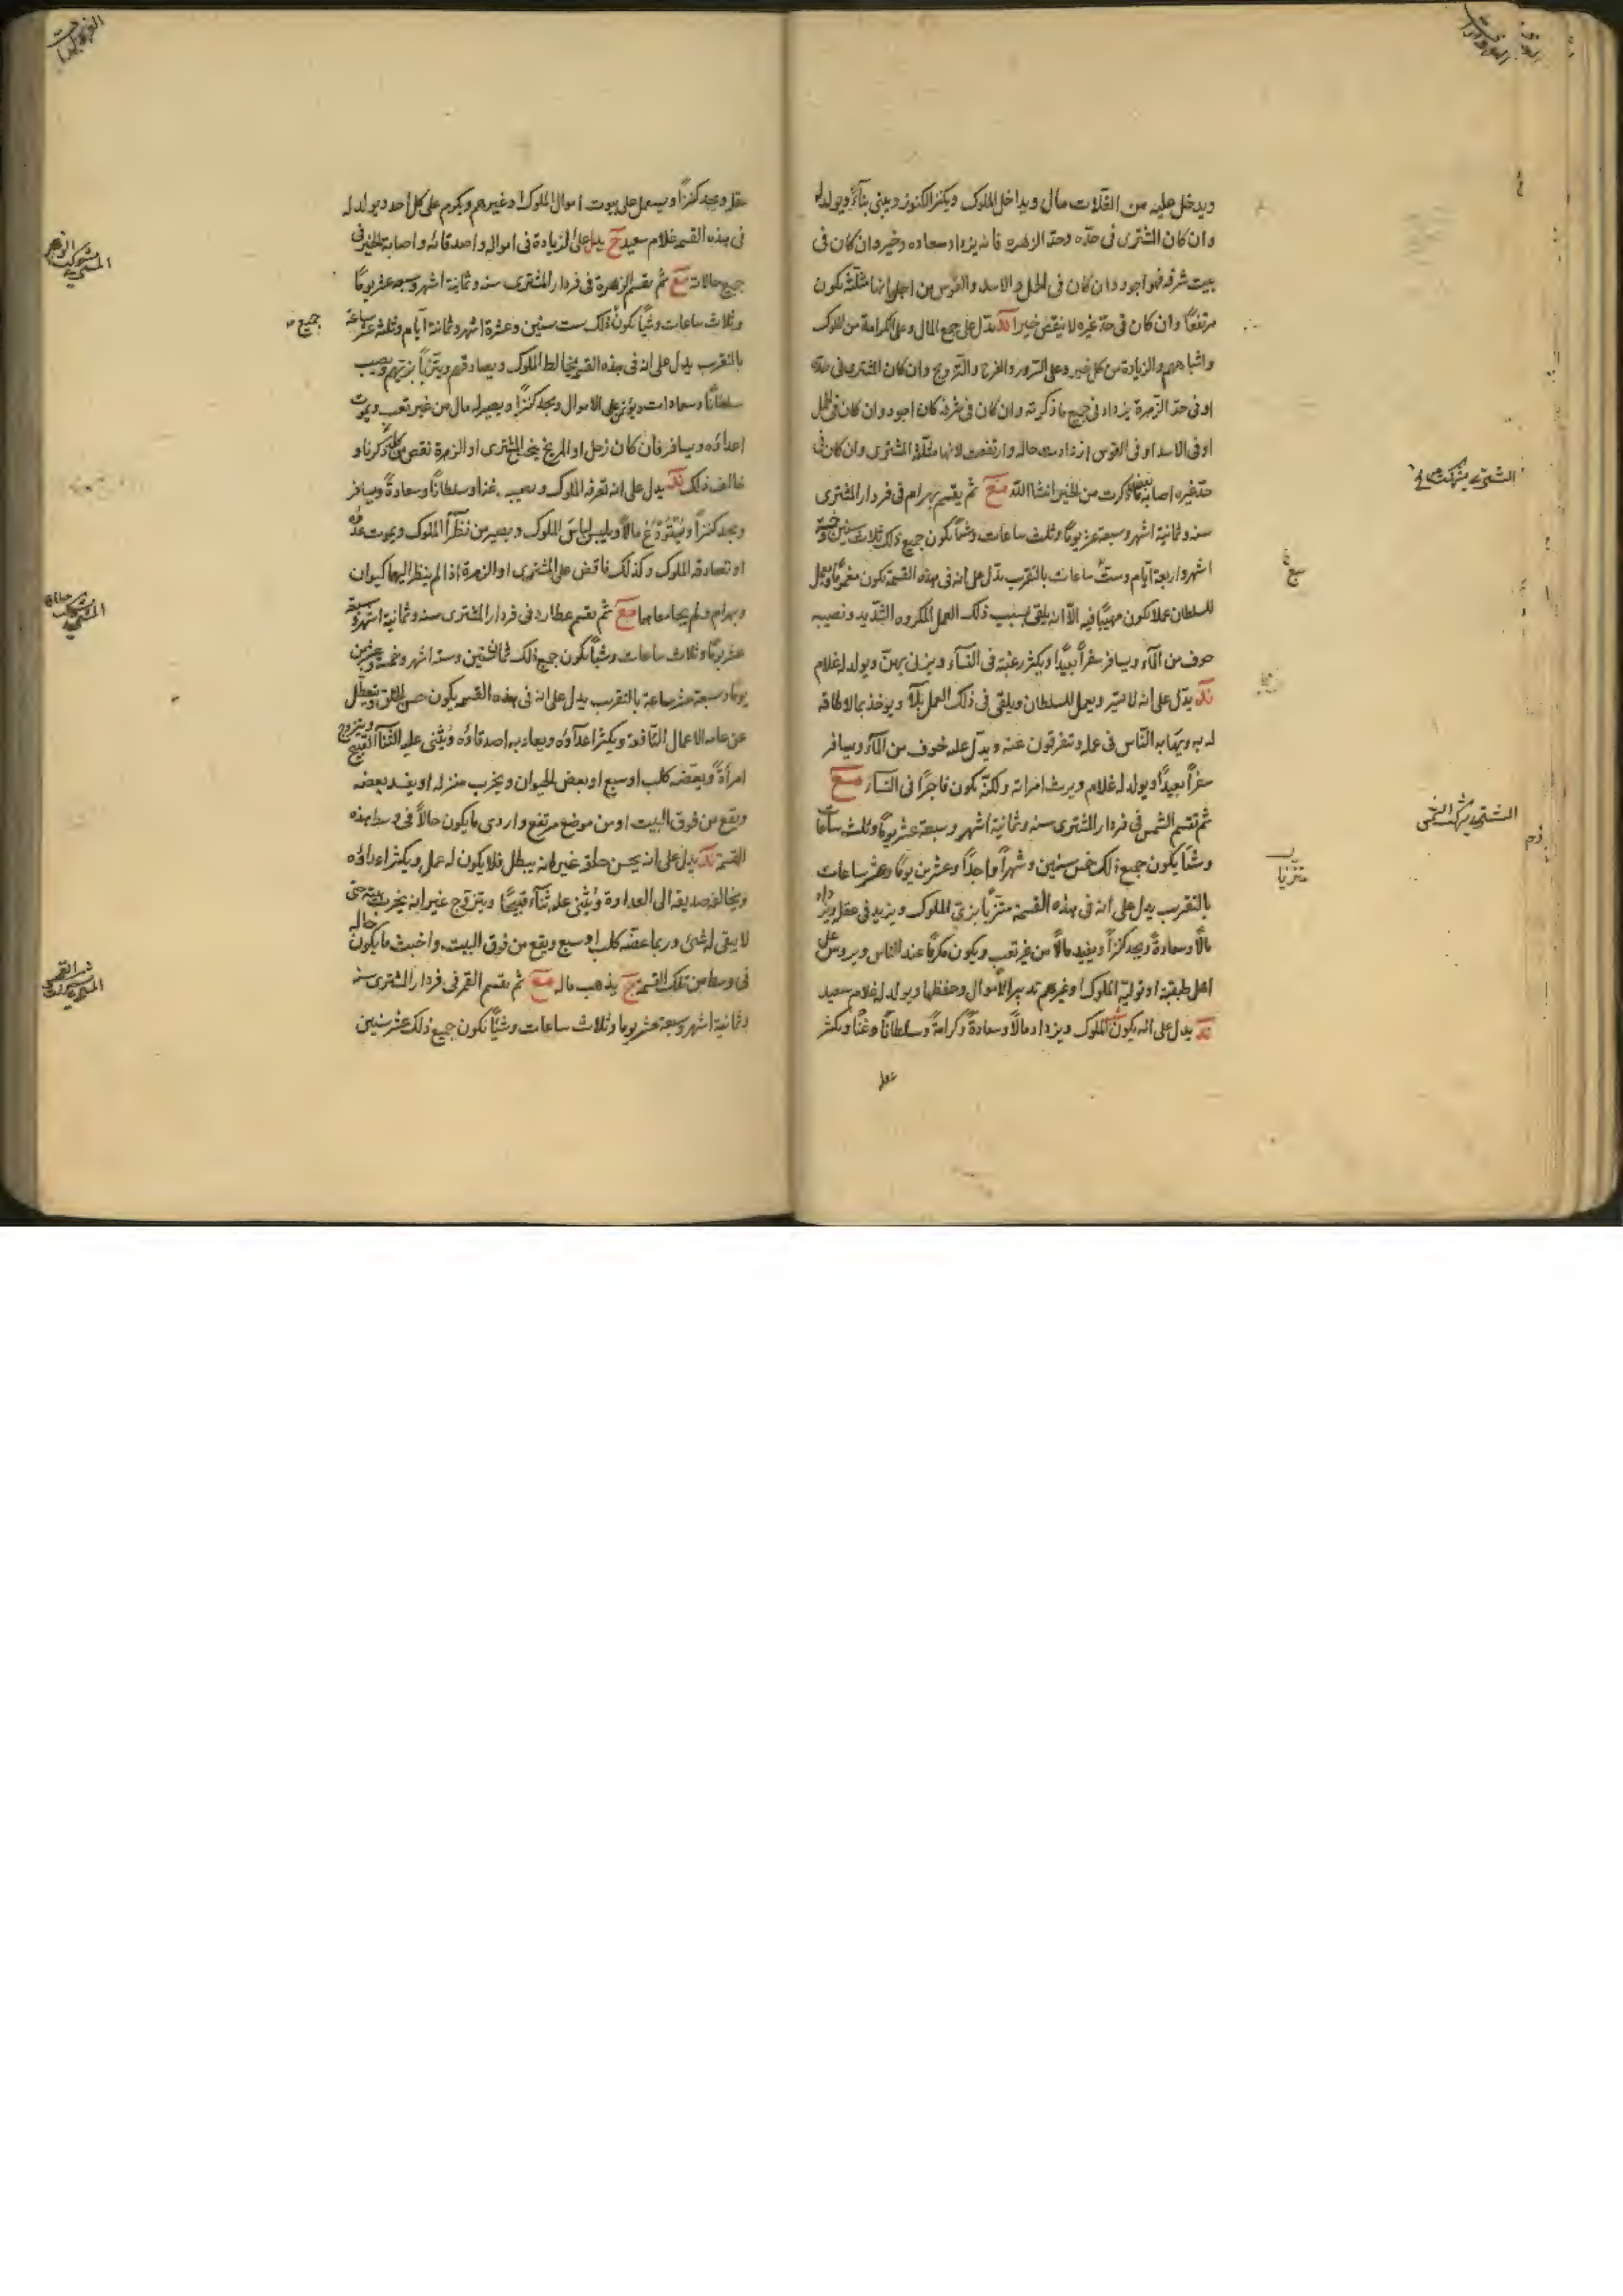 ويدخل عليه من الغلات مال ويداخل الملوك ويكنز الكنوز ويبنى بناءً ويولد له
وان كان المشترى فى حدّه وحدّ الزهره فانه يزداد سعاده وخير وان كان فى
بيت شرفه فهو اجود وان كان فى الحمل والاسد والقوس من اجل انها مثلثه يكون
مرتفعًا وان كان فى حدّ غيره لا ينقص خيرا يدّل على جمع المال وعلى الكرامة من الملوك
واشباههم والزيادة من كل خير وعلى السّرور والفرح والتّزويج وان كان المشترى فى حدّه
او فى حدّ الزّهرة يزداد فى جميع ما ذكرته وان كان فى شرفه كان اجود وان كان فى الحمل
او فى الاسد او فى القوس ازدادت حاله وارتفعت لانها مثلّثة المشترى وان كان فى
حدّ غيره اصابه بعض ما ذكرت من الخير انشا الله مع ثم يقسم بهرام فى فردار المشترى
سنه وثمانية اشهر وسبعة عشر يومًا وثلث ساعات وشيًا يكون جميع ذلك ثلاث سنين وخمسة
اشهر واربعة ايّام وستّ ساعات بالتقريب يدّل على انه فى هذه القسمة يكون مغمومًا ويعمل
للسلطان عملا يكون مهيبًا فيه الّا انه يلقى بسبب ذلك العمل المكروه الشّديد ونصيبه
خوف من المآء ويسافر سفراً بعيدًا ويكثر رغبته فى النسآء ويزنى بهنّ ويولد له غلام
يدّل على انه ويعمل للسلطان ويلقى فى ذلك العمل بلآءً ويوخذ بما لا طاقة
له به ويهابه النّاس فى عمله وتفرقون عنه ويدّل على خوف من المآء ويسافر
سفراً بعيداً ويولد له غلام ويرث امراته ولكنّه يكون فاجرًا فى النسآء مع
ثم تقسم الشمس فى فردار المشترى سنه وثمانية اشهر وسبعة عشر يومًا وثلث ساعات
وشيًا يكون جميع ذلك خمس سنين وشهراً واحدًا وعشرين يومًا وعشر ساعات
بالتقريب يدل على انه فى هذه القسمة متزيّاً بزىّ الملوك ويزيد فى عقله ويزداد
مالًا وسعادةً ويجد كنزاً ويفيد مالًا من غير تعب ويكون مكرمًا عند الناس ويروس على
اهل طبقته او توليه الملوك او غيرهم تدبير الاموال وحفظها ويولد له غلام سعيد
يدل على انه يكون الملوك ويزداد مالًا وسعادةً وكرامةً وسلطانًا وغنًا ويكثر
عقله
المشترى بشركت الشمس
متزيّا
عقله ويجد كنزاً ويستعمل على بيوت اموال الملوك او غيرهم ويكرم على كل احد ويولد له
فى هذه القسمه غلام سعيد يدل على الزيادة فى امواله واصدقائه واصابة الخير فى
جميع حالاته مع ثم تقسم الزهرة فى فردار المشترى سنه وثمانية اشهر وسبعه عشر يومًا
وثلاث ساعات وشيًا يكون ذلك ست سنين وعشرة اشهر وثمانية ايام وثلثه عشر ساعة
بالتقريب يدل على انه فى هذه القسمه يخالط الملوك ويصادقهم ويتزيّا بزيّهم ويصيب
سلطانًا وسعادات ويؤتمن على الاموال ويجد كنزًا ويصير له مال من غير تعب ويموت
اعداؤه ويسافر فان كان زحل او المريخ المشترى او الزهرة نقص من كلما ذكرنا و
خالف ذلك يدل على انه تعرفه الملوك ويصيبه غنا وسلطانًا وسعادةً ويسافر
ويجد كنزاً مالًا ويلبس لباس الملوك ويصير من نظرآء الملوك ويموت عدوّه
او تصادقه الملوك وكذلك فاقض على المشترى او الزهرة اذا لم ينظر اليهما كيوان
وبهرام ولم يجامعاهما مع ثم يقسم عطارد فى فردار المشترى سنه وثمانية اشهر وسبعة
عشر يومًا وثلاث ساعات وشيًا يكون جميع ذلك ثمان سنين وسته اشهر وخمسة وعشرين
يومًا وسبعة عشر ساعة بالتقريب يدل على انه فى هذه القسمه يكون حسن الخلق وتعطّل
عن عامه الاعمال النّافعة ويكثر اعدآؤه ويعاديه اصدقاؤه ويثنى عليه الثنآء القبيح ويتزوج
امرأةً ويعضّه كلب او سبع او بعض الحيوان ويخرب منزله او يفسد بعضه
ويقع من فوق البيت او من موضع مرتفع واردى ما يكون حالًا فى وسط هذه
القسمة يدل على انه يحسن خلقه غير انه يبطل فلا يكون له عمل ويكثر اعداؤه
ويخالفه صديقه الى العداوة ويُثنى عليه ثنآءً قبيحًا ويتزوّج غير انه يخرب بيته حتى
لا يبقى له شئ وربما عضّه كلب او سبع ويقع من فوق البيت واخبث ما يكون حاله
فى وسط من تلك القسمة يذهب ماله مع ثم يقسم القمر فى فردار المشترى سنه
وثمانية اشهر وسبعة عشر يوما وثلاث ساعات وشيًا يكون جميع ذلك عشر سنين
جميع